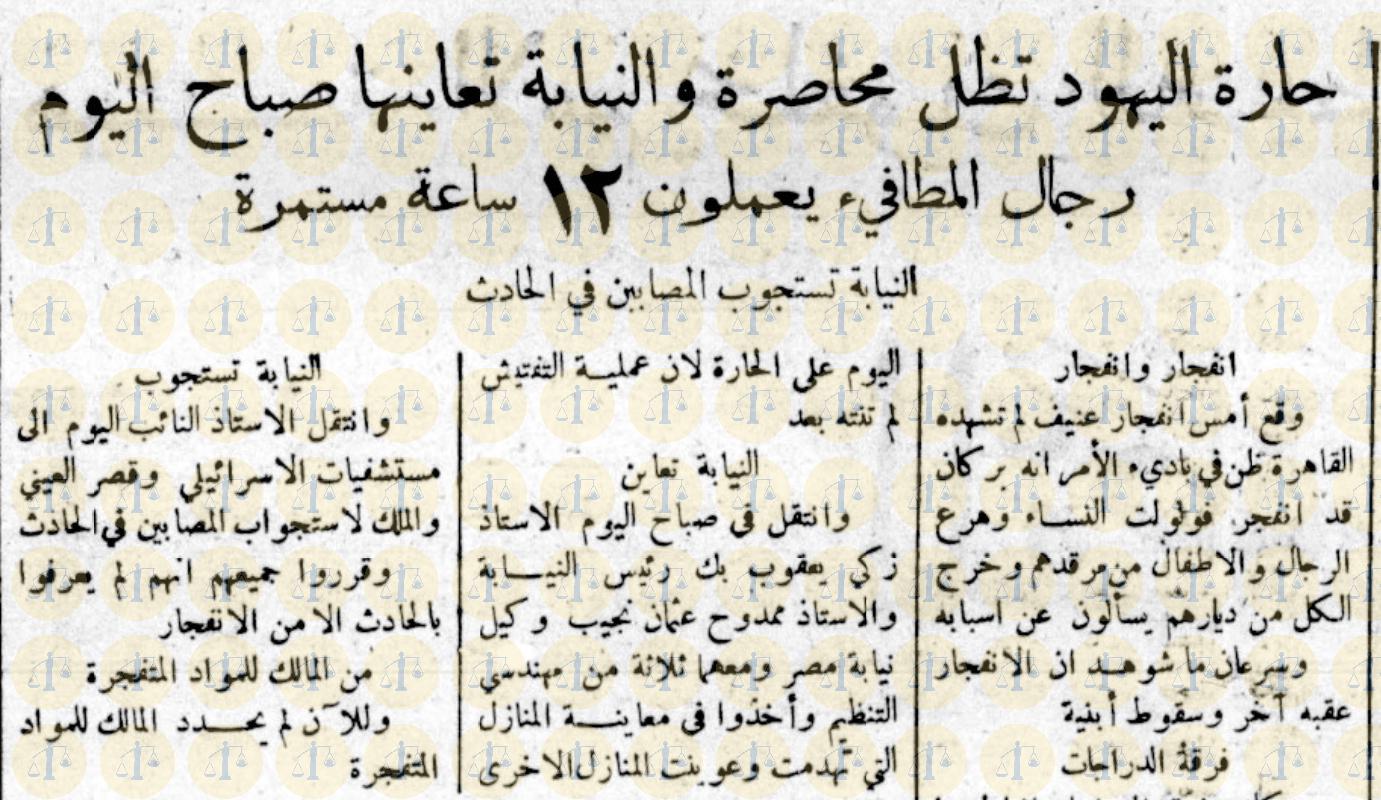 حارة اليهود تظل محاصرة والنيابة تعاينها صباح اليوم
رجال المطافيء يعملون ١٢ ساعة مستمرة
النيابة تستجوب المصابين في الحادث
انفجار وانفجار
وقع أمس انفجار عنيف لم تشهده
القاهرة ظن في باديء الأمر انه بركان
قد انفجر فولولت النساء وهرع
الرجال والاطفال من مرقدهم وخرج
الكل من ديارهم يسألون عن اسبابه
وسرعان ما شوهد ان الانفجار
عقبه آخر وسقوط أبنية
فرقة الدراجات
اليوم على الحارة لان عملية التفتيش
لم تنته بعد
النيابة تعاين
وانتقل في صباح اليوم الاستاذ
زكي يعقوب بك رئيس النيابة
والاستاذ ممدوح عثمان نجيب وكيل
نيابة مصر ومعهما ثلاثة من مهندسي
التنظيم وأخذوا في معاينة المنازل
التي تهدمت وعوينت المنازل الاخرى
النيابة تستجوب
وانتقل الاستاذ النائب اليوم الى
مستشفيات الاسرائيلي وقصر العيني
والملك لاستجواب المصابين في الحادث
وقرروا جميعهم انهم لم يعرفوا
بالحادث الا من الانفجار
من المالك للمواد المتفجرة
وللآن لم يحدد المالك للمواد
المتفجرة